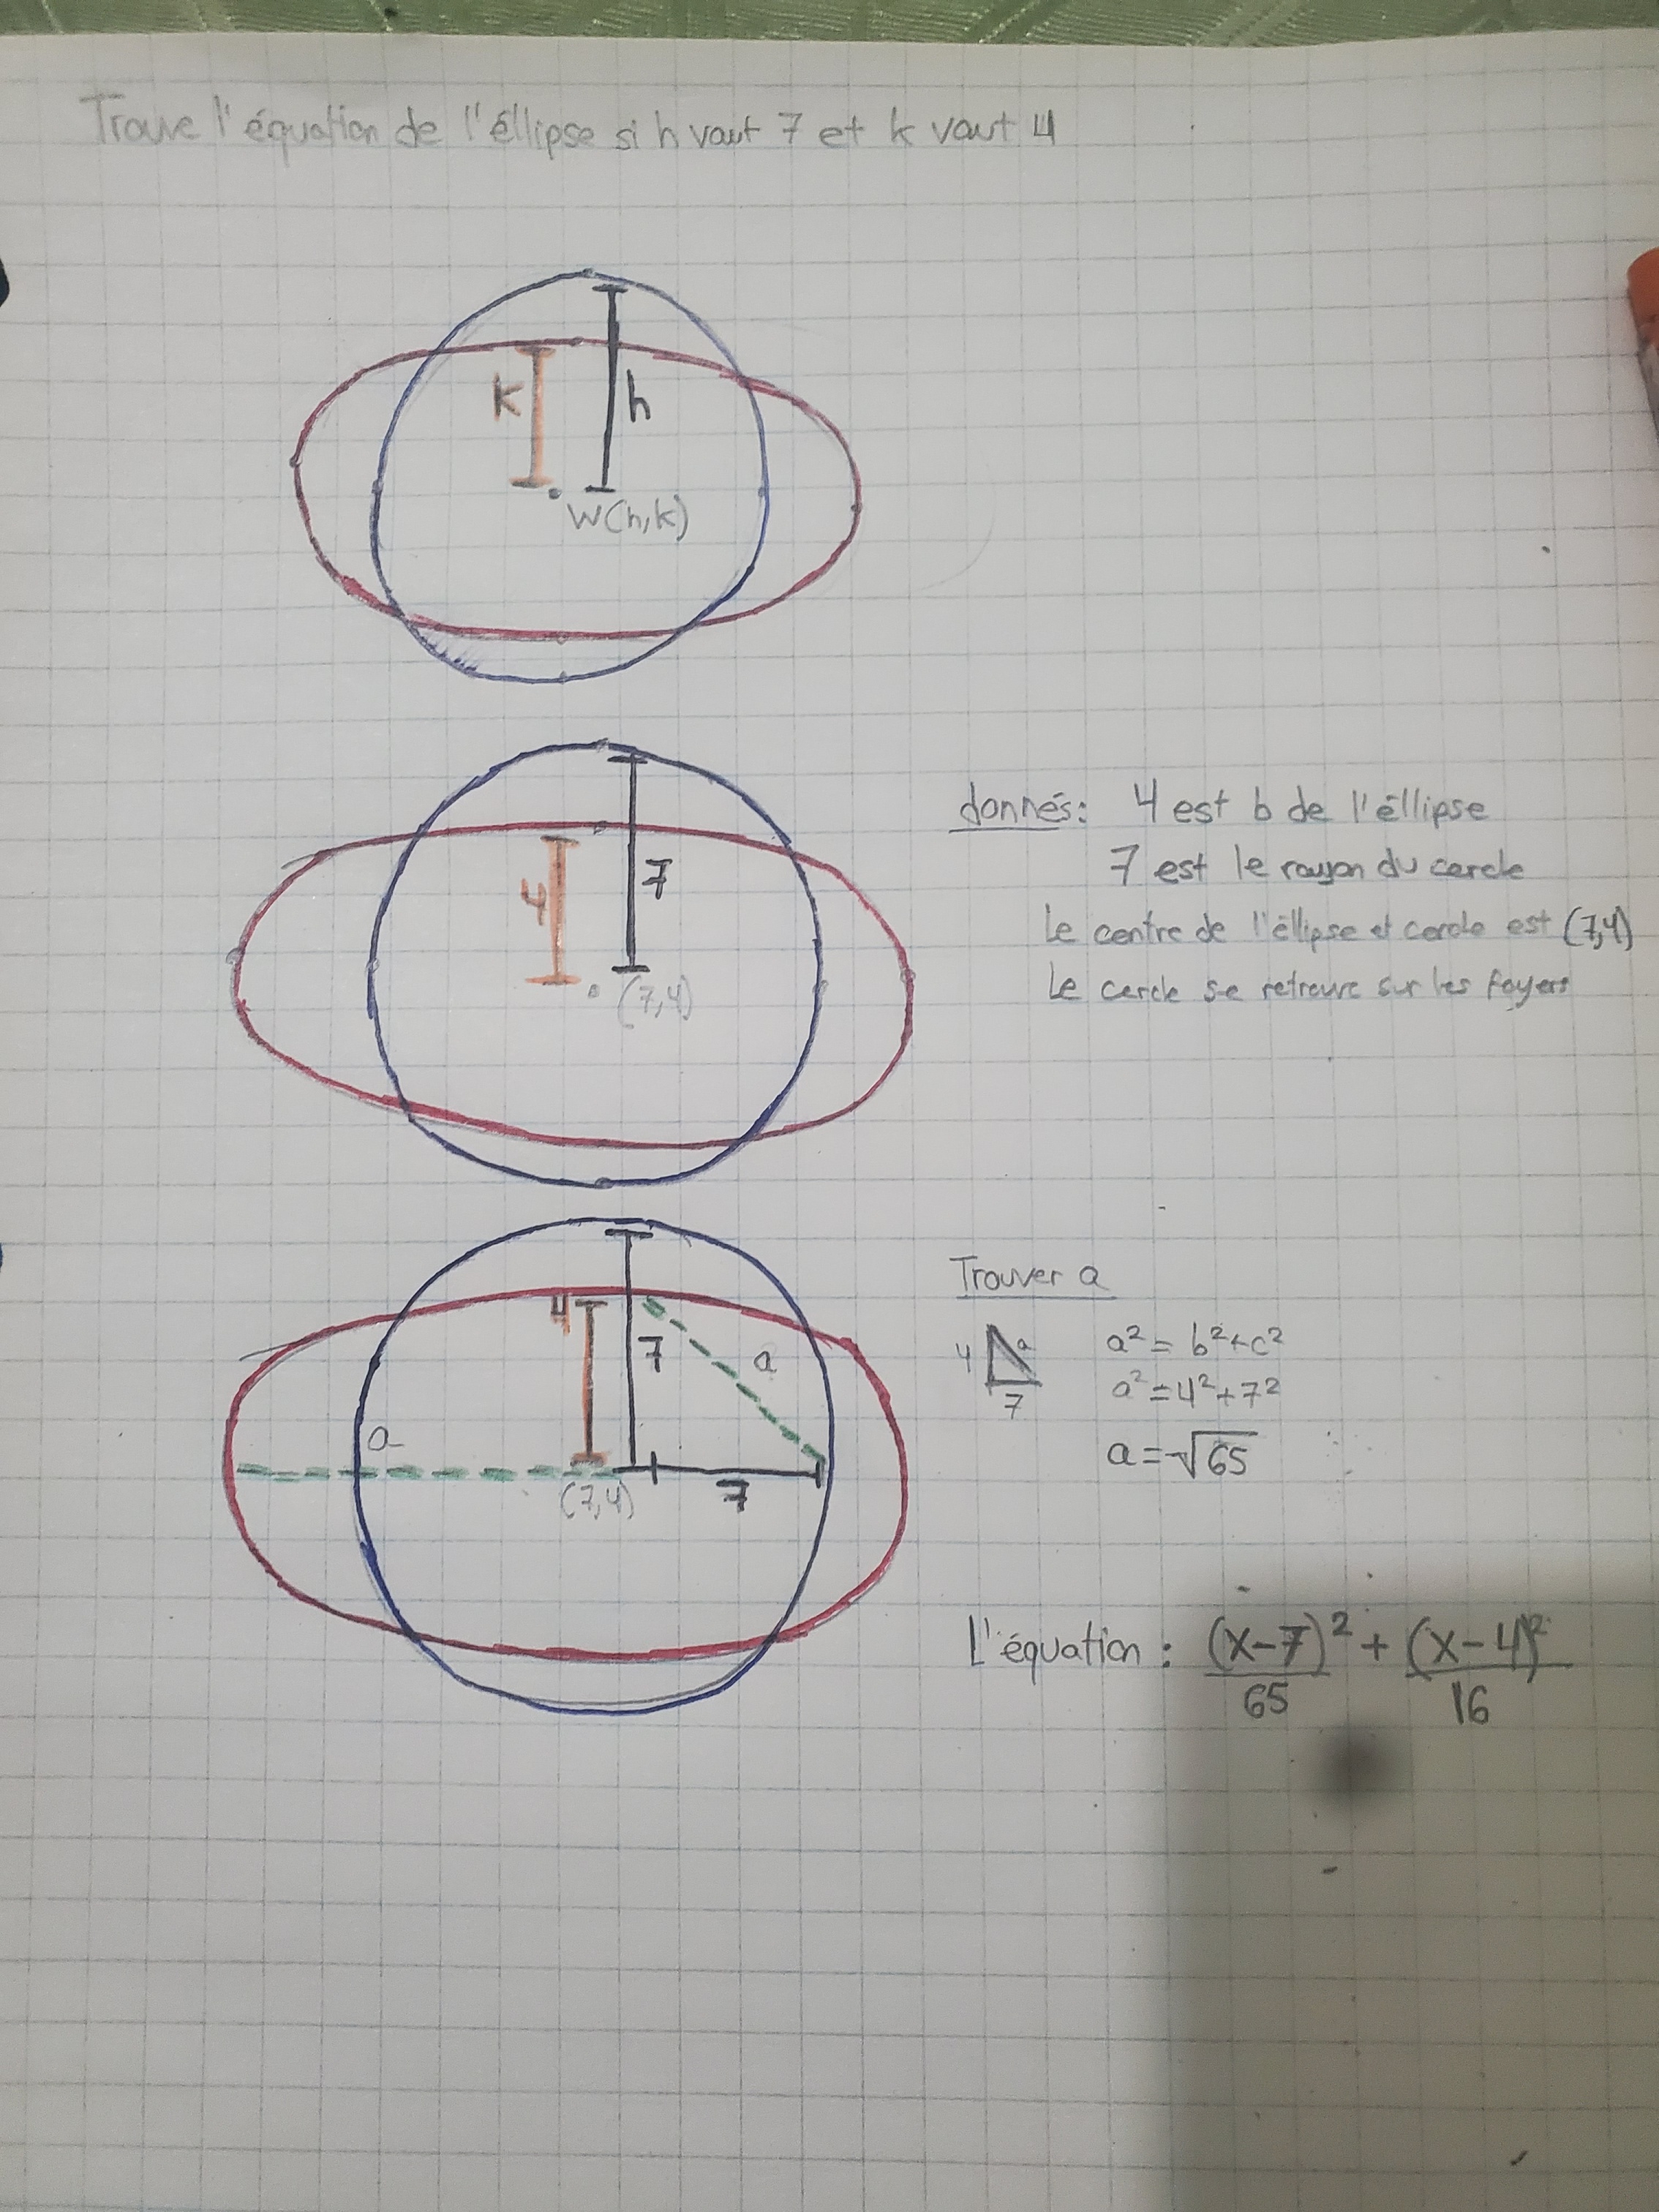 Trouve l'équation de l'éllipse si h vaut 7 et k vaut 4
k
h
W(h,k)
donnés: 4 est b de l'éllipse
7 est le rayon du cercle
Le centre de l'éllipse et cercle est (7,4)
Le cercle se retrouve sur les foyers
4
7
(7,4)
Trouver a
4
a
7
a² = b²+c²
a² = 4²+7²
a = √65
4
7
a
a
(7,4)
7
L'équation : (x-7)²/65 + (x-4)²/16